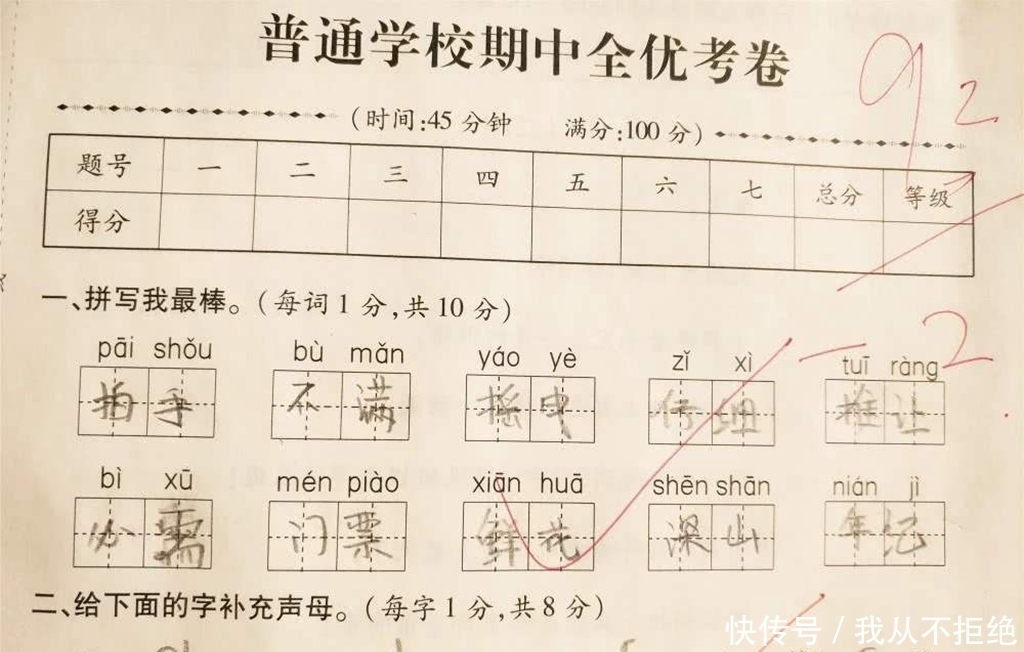 普通学校期中全优考卷
92
(时间:45分钟 满分:100分)
题号 一 二 三 四 五 六 七 总分 等级
得分
一、拼写我最棒。(每词1分,共10分) -2
pāi shǒu bù mǎn yáo yè zǐ xì tuī ràng
拍手 不满 摇曳 仔细 推让
bì xū mén piào xiān huā shēn shān nián jì
必需 门票 鲜花 深山 年纪
二、给下面的字补充声母。(每字1分,共8分)
快传号/我从不拒绝